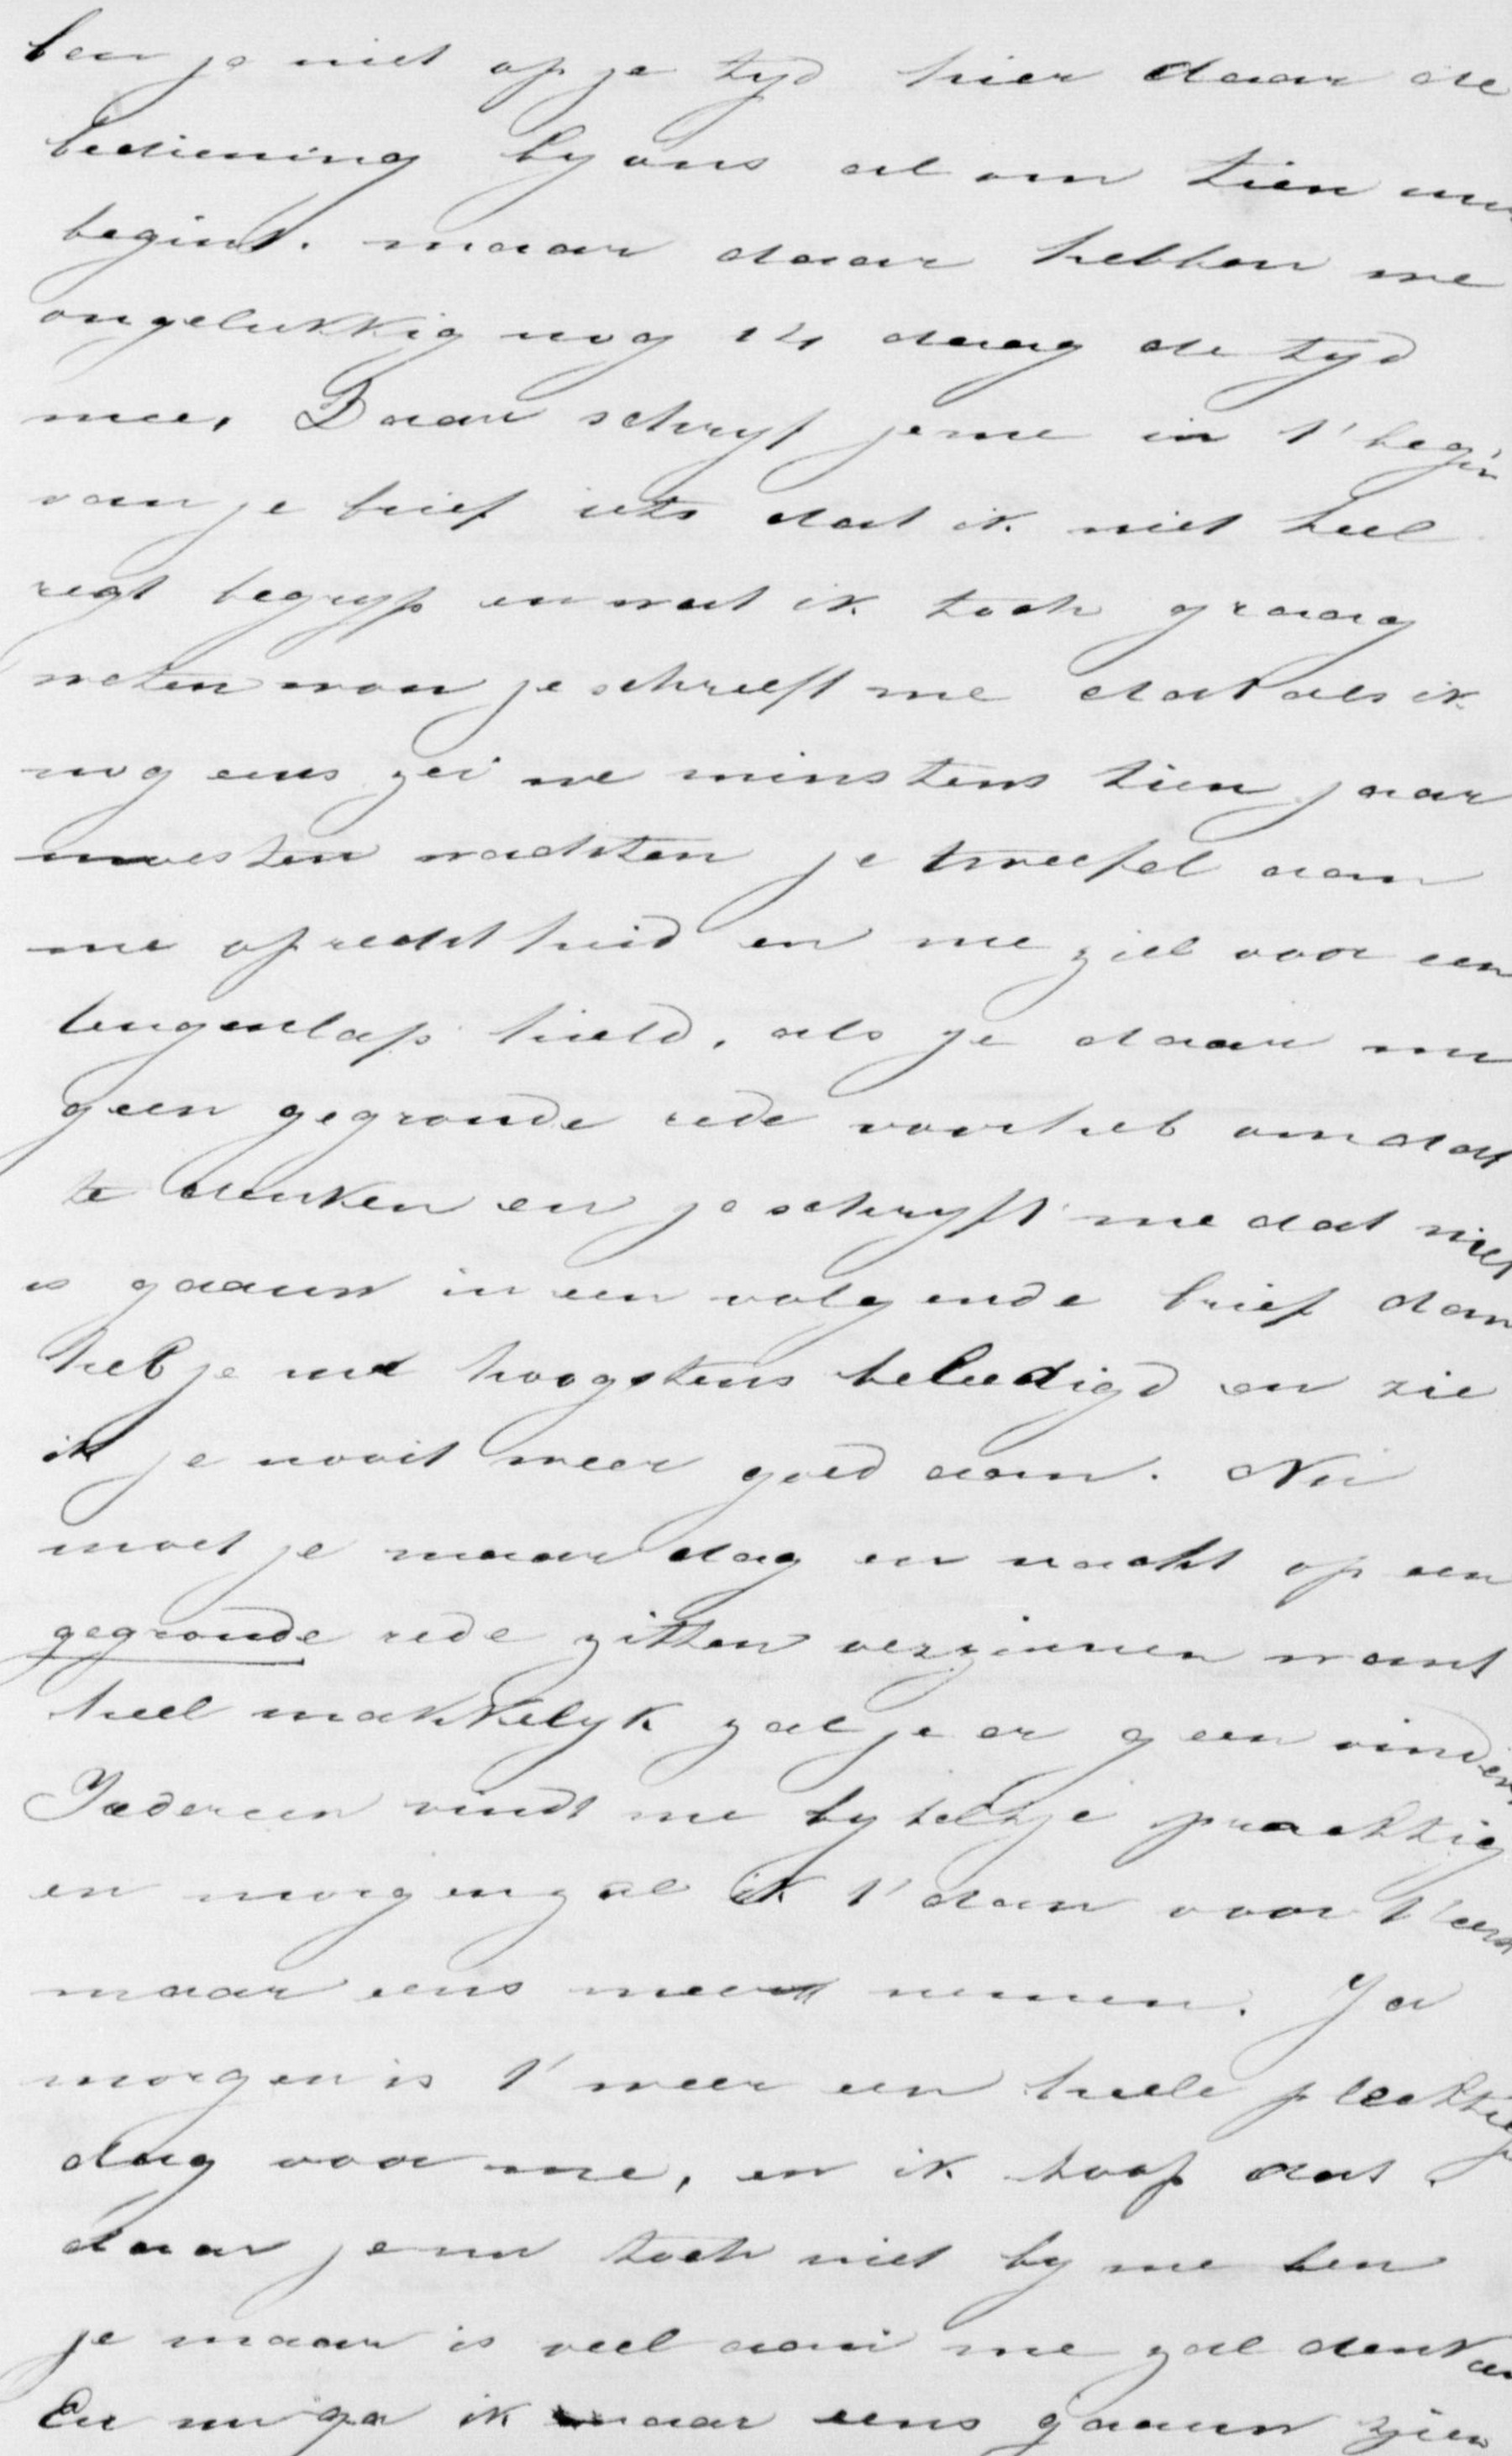 ben je niet op je tyd hier daar de
bediening by ons al om tien uur
begint. maar daar hebben we
ongelukkig nog 14 daag de tyd
mee. Daar schryf je me in t' begin
van je brief iets dat ik niet heel
regt begryp en wat ik toch graag
weten wou je schreeft me dat als ik
nog eens zei we minstens tien jaar
moesten wachten je tweefel aan
me oprechtheid en me ziel voor een
leugenlap hield, als je daar nu
geen gegronde rede voor heb om dat
te denken en je schryft me dat niet
is gaauw in een volgende brief dan
heb je me hoogstens beleedigd en zie
ik je nooit meer goed aan. Nu
moet je maar dag en nacht op een
gegronde rede zitten verzinnen want
heel makkelyk zal je er geen vinden
Iedereen vindt me bybeltje prachtig
en morgen zal ik t' dan voor t' eerst
maar eens mee nemen. Ja
morgen is t' weer een heele plechtige
dag voor me, en ik hoop dat.
daar je nu toch niet by me ben
je maar is veel aan me zal denken
En nu ga ik maar eens gaauw zien